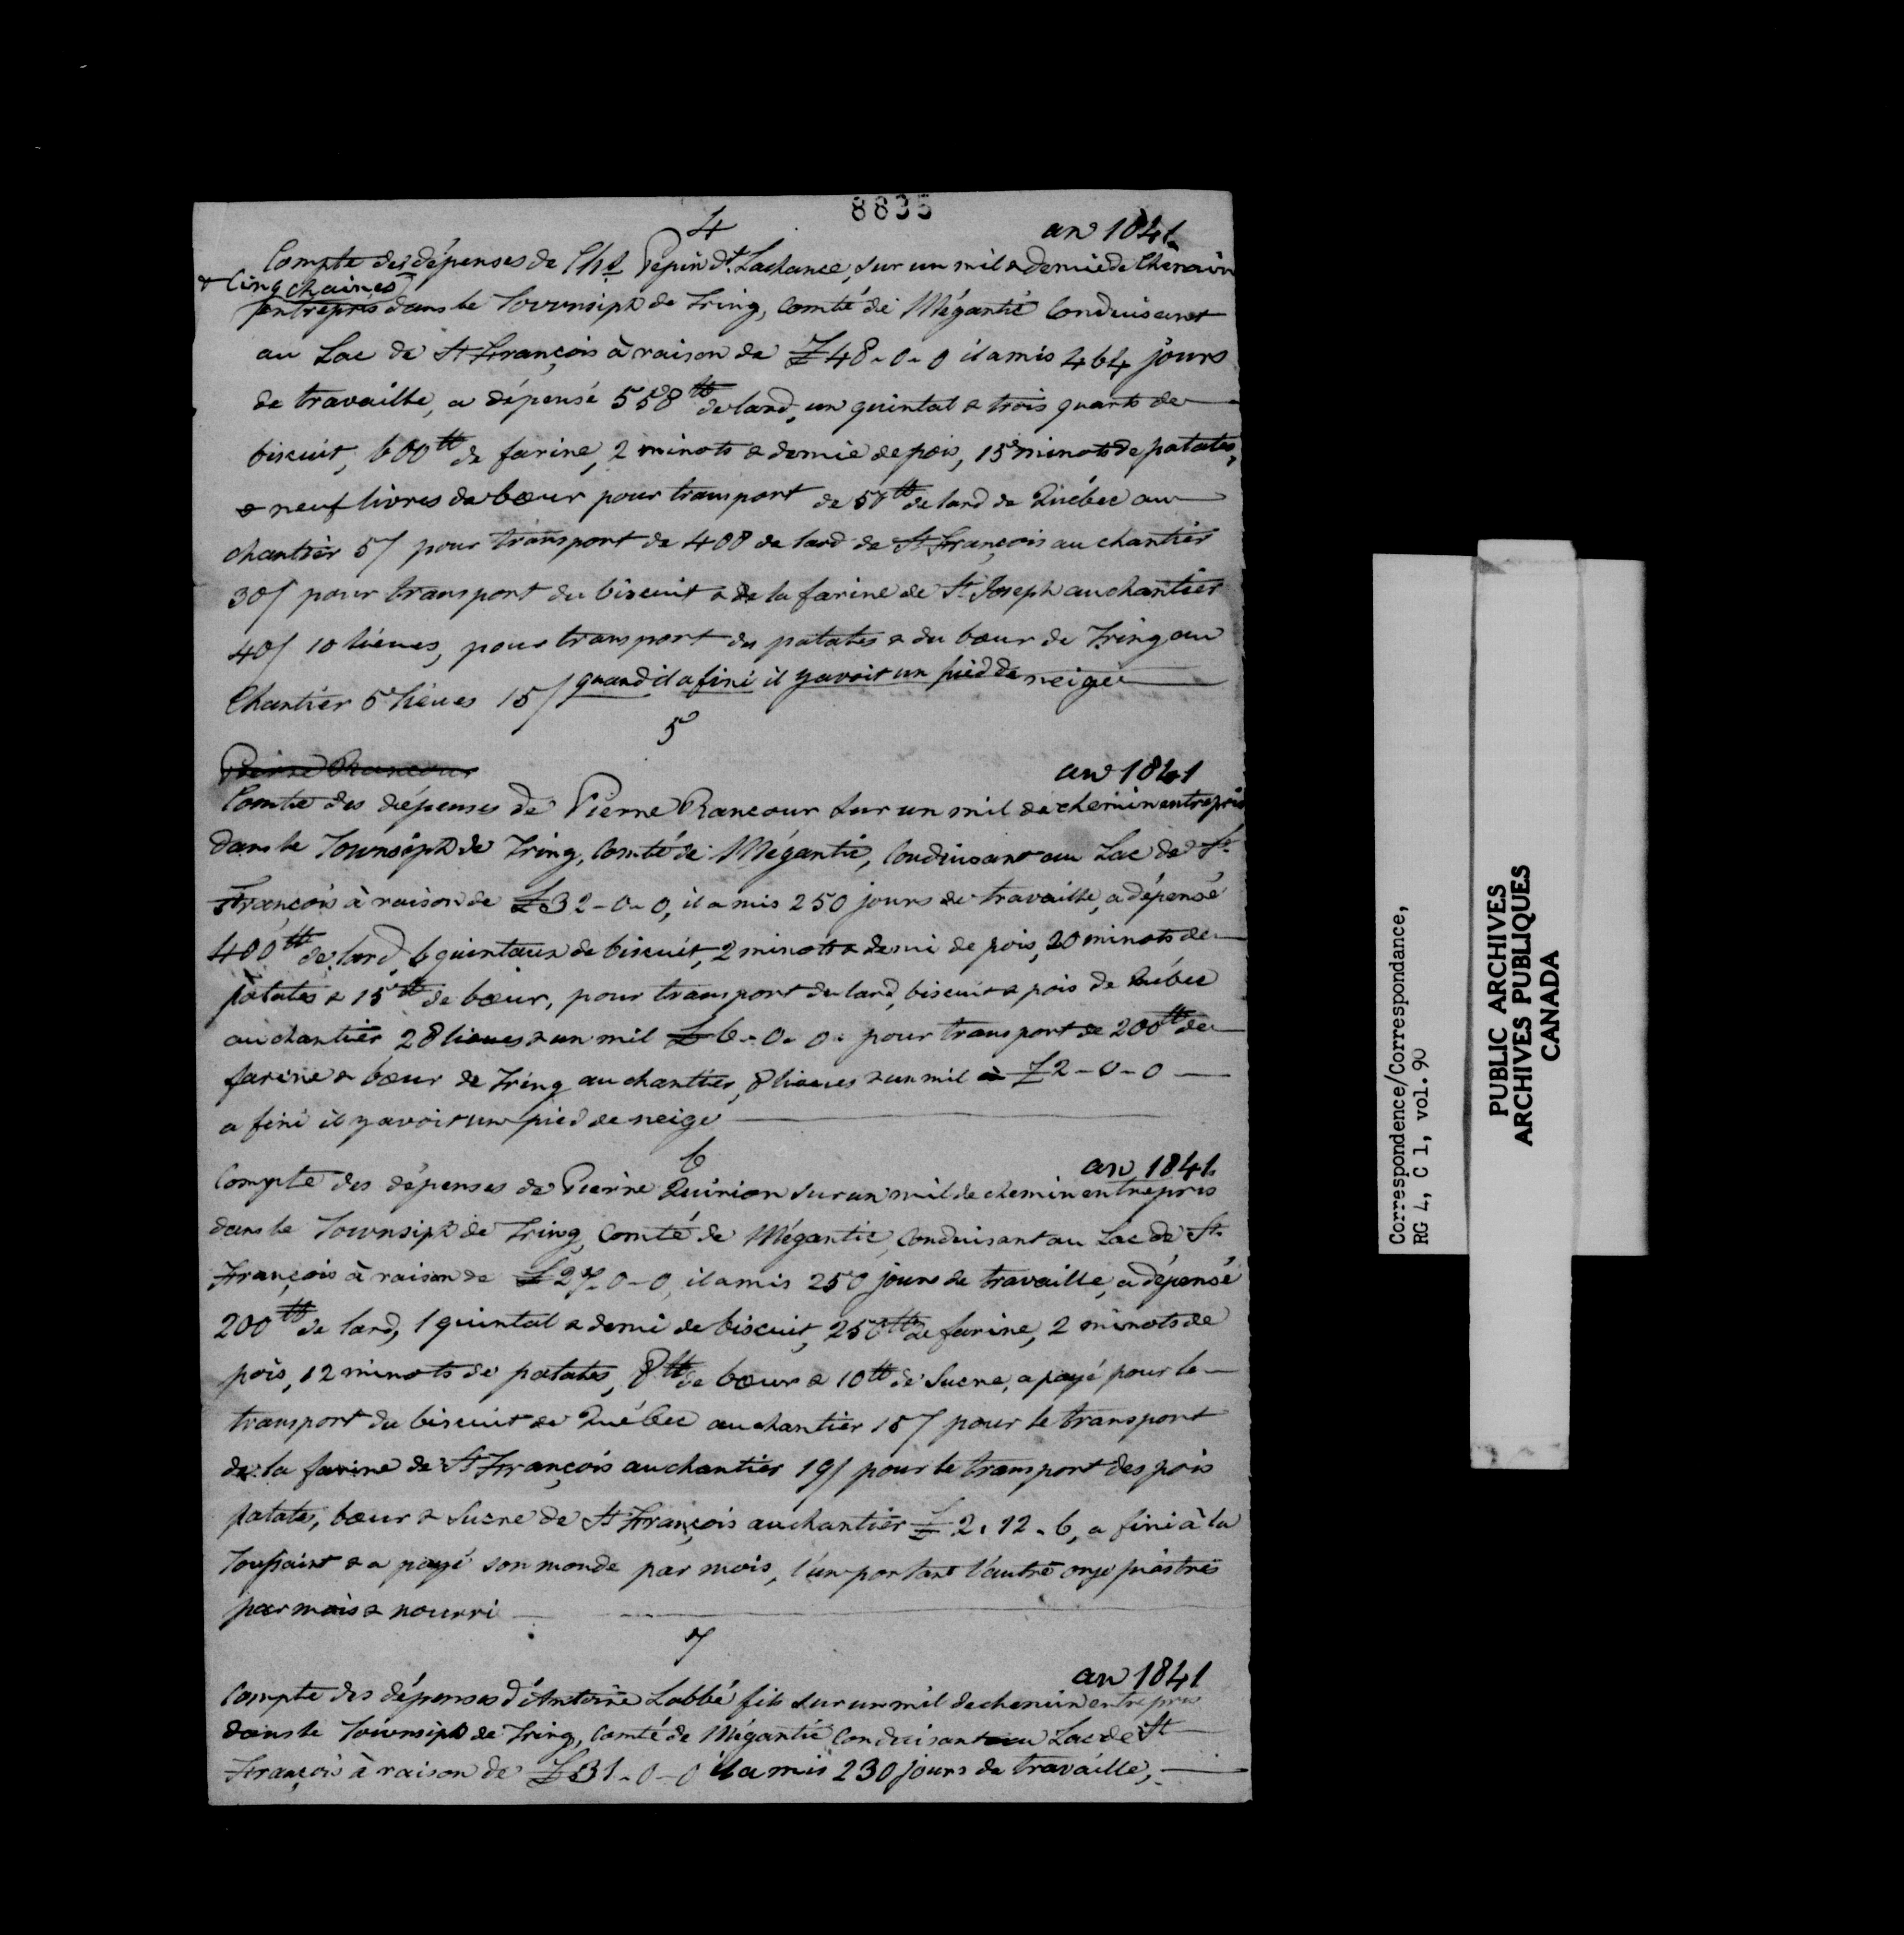 8835
4
an 1841
Compte des dépenses de Chs Pepin dt. Lachance, sur un mil & demie de Chemin
& Cinq chaines
entrepris dans le Townsiph de Tring, Comté de Mégantic Conduisant
au Lac de St François à raison de £48-0-0 il a mis 464 jours
de travaille, a dépensé 558 tt de lard, un quintal & trois quarts de
biscuit, 600 tt de farine, 2 minots & demie de pois, 15 minots de patates,
& neuf livres de bœur pour transport de 50 tt de lard de Québec au
chantier 5/ pour transport de 408 de lard de St François au chantier
30/ pour transport du biscuit & de la farine de St Joseph au chantier
40/ 10 lieues, pour transport des patates & du bœur de Tring au
Chantier 5 lieues 15/ quand il a fini il y avoit un pied de neige
5
Pierre Rancour
an 1841
Comte des dépenses de Pierre Rancour sur un mil de chemin entrepris
dans le Townsiph de Tring, Comté de Mégantic, Conduisant au Lac de St
François à raison de £32-0-0, il a mis 250 jours de travaille, a dépensé
400 tt de lard, 6 quintaux de biscuit, 2 minots & demi de pois, 20 minots de
patates & 15 tt de bœur, pour transport du lard, biscuit & pois de Québec
au chantier 28 lieues & un mil £6-0-0 pour transport de 200 tt de
farine & bœur de Tring au chantier, 8 lieues & un mil à £2-0-0
a fini il y avoit un pied de neige
6
an 1841
Compte des dépenses de Pierre Quirion sur un mil de chemin entrepris
dans le Townsiph de Tring, Comté de Mégantic, Conduisant au Lac de St
François à raison de £27-0-0, il a mis 250 jours de travaille, a dépensé
200 tt de lard, 1 quintal & demi de biscuit, 250 tt de farine, 2 minots de
pois, 12 minots de patates, 8 tt de bœur & 10 tt de Sucre, a payé pour le
transport du biscuit de Québec au chantier 15/ pour le transport
de la farine de St François au chantier 19/ pour le transport des pois
patates, bœur & Sucre de St François au chantier £2.12.6, a fini à la
Toussaint & a payé son monde par mois, l'un portant l'autre onze piastres
par mois & nourri
7
an 1841
Compte des dépenses d'Antoine Labbé fils sur un mil de chemin entrepris
dans le Townsiph de Tring, Comté de Mégantic Conduisant au Lac de St
François à raison de £31-0-0 il a mis 230 jours de travaille,
Correspondence/Correspondance,
RG 4, C 1, vol. 90
PUBLIC ARCHIVES
ARCHIVES PUBLIQUES
CANADA